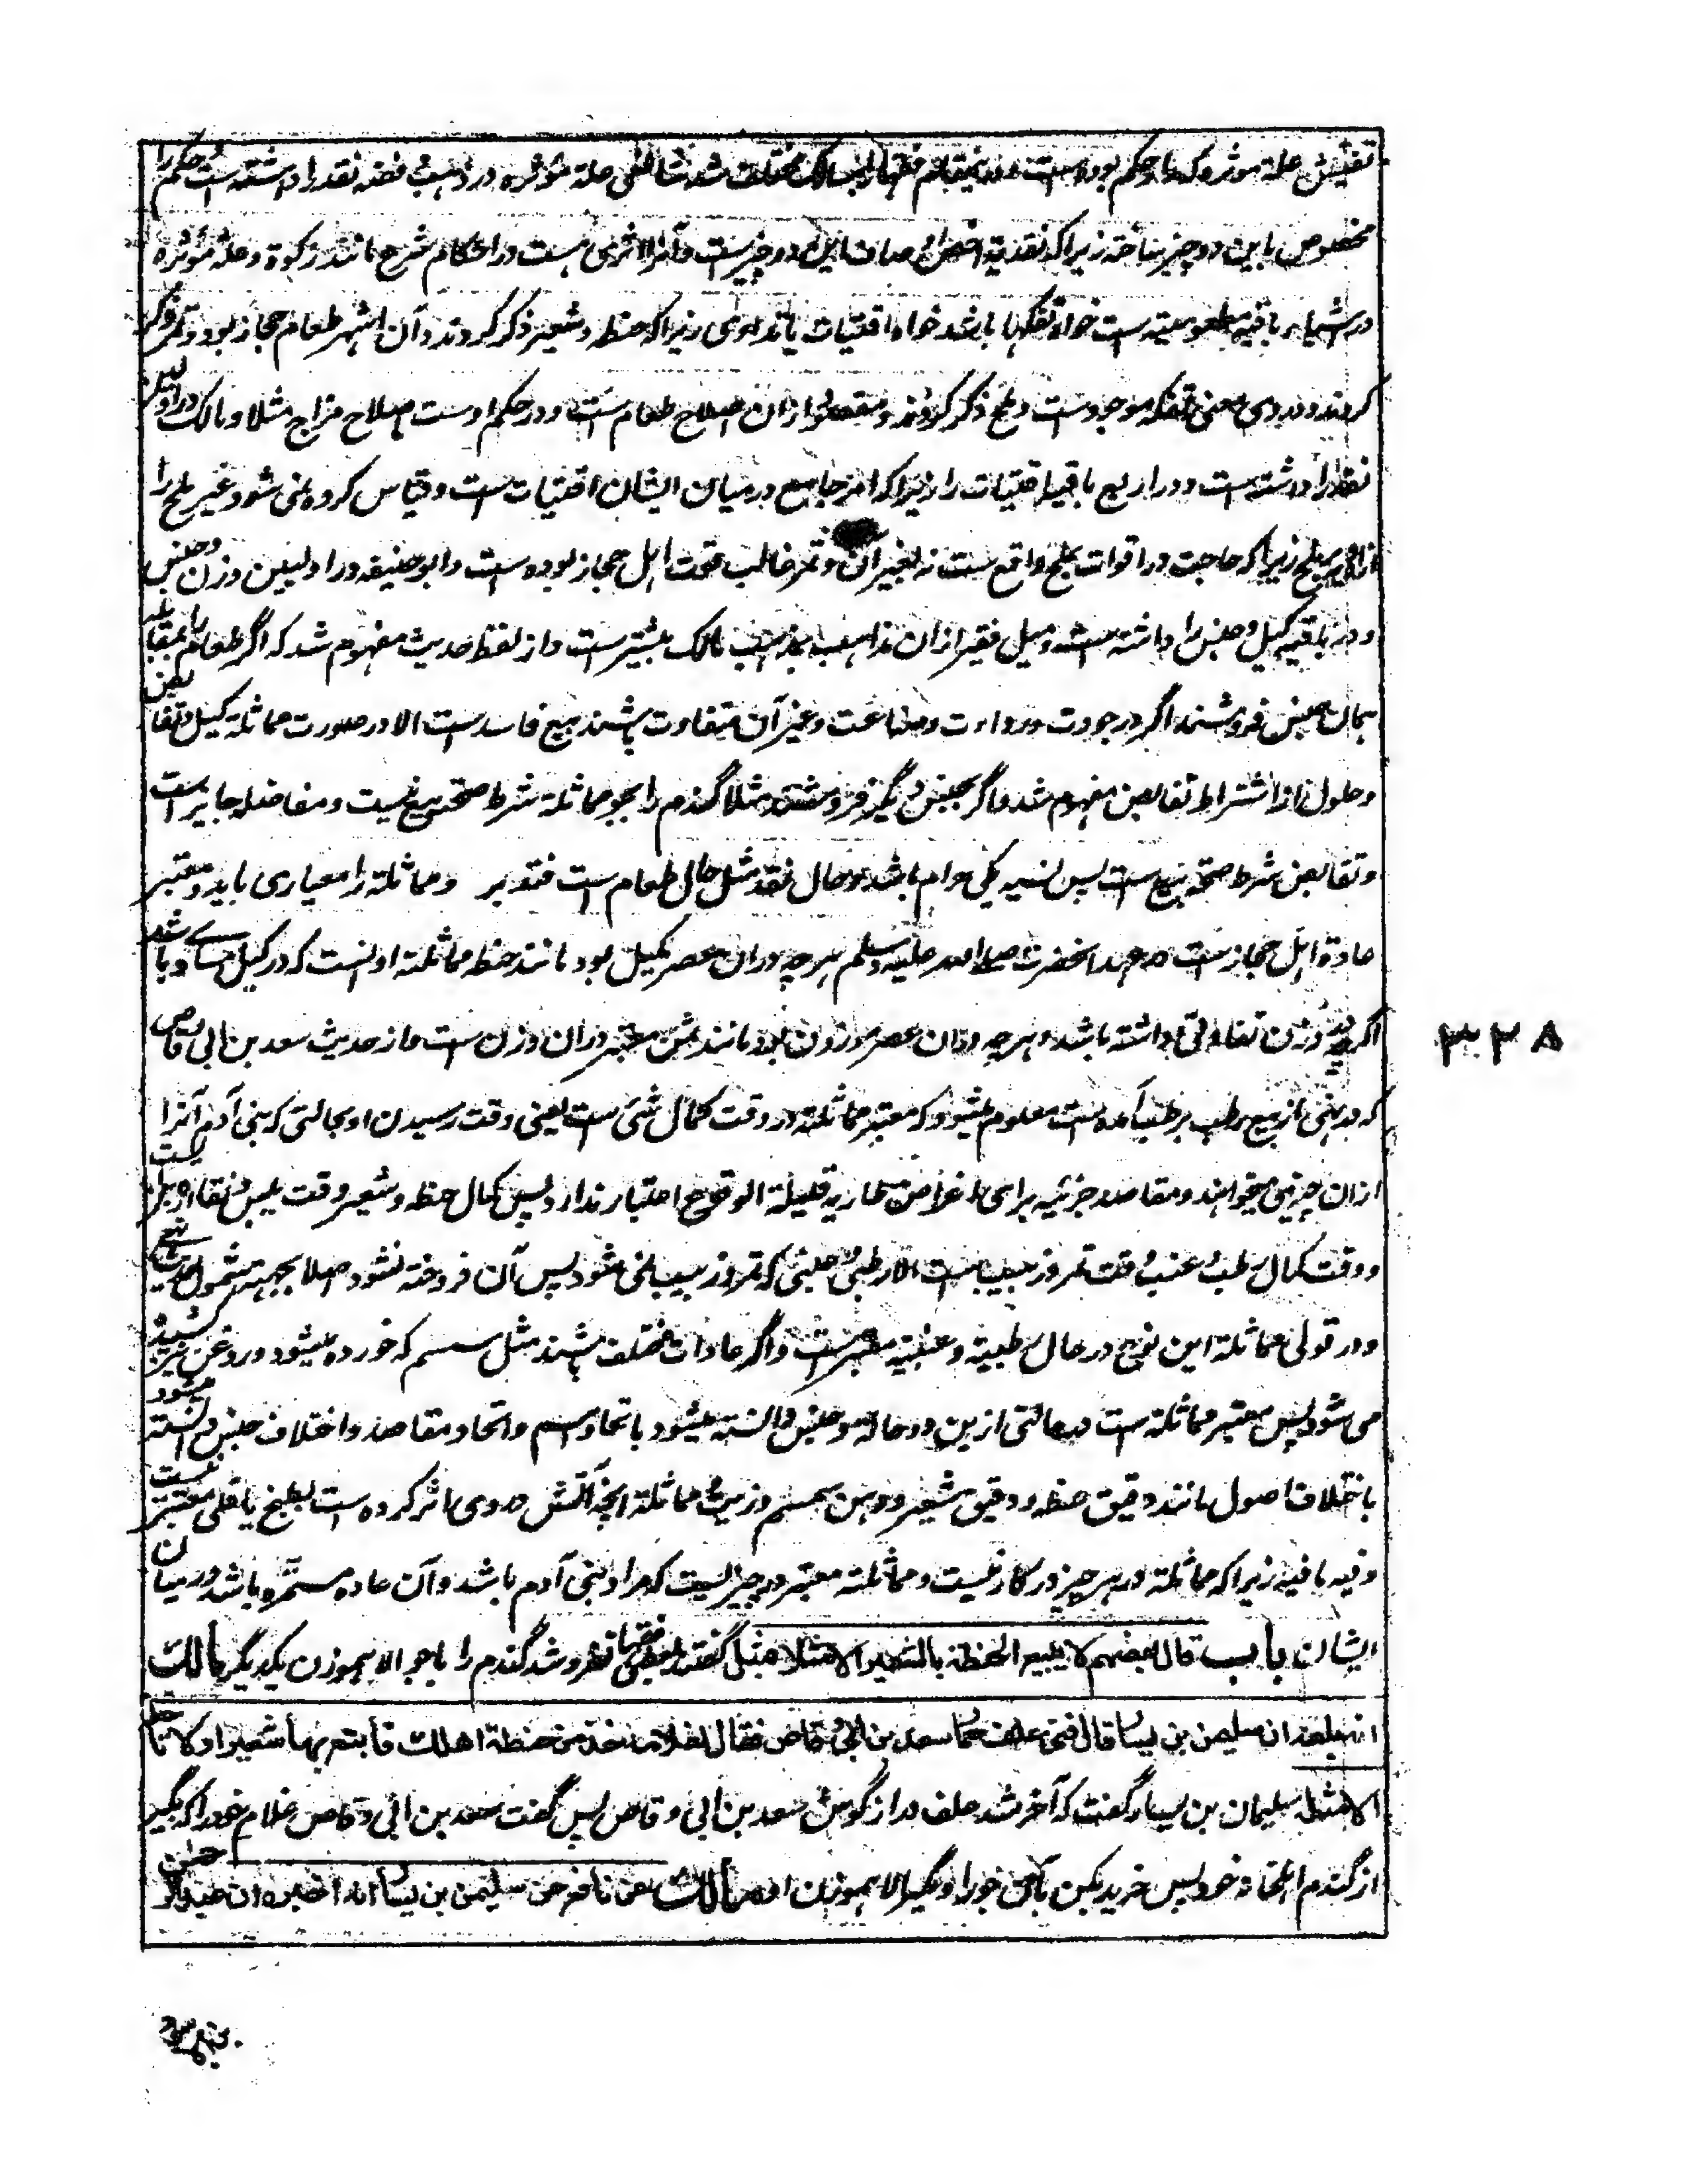 تفتیش علة موثره که مدار حکم بوده است و درینمقام فقها را مسالک مختلف شد شافعی علة مؤثره در ذهب و فضه نقد را داشته است و حکم را
مخصوص باین دو چیز ساخته زیرا که نقدیة اخص اوصاف این دو چیز است و آنرا اثری هست در احکام شرع مانند زکوة و علة مؤثره
در اشیاء باقیه مطعومیة است خواه تفکها باشد خواه اقتیات یا تداوی زیرا که حنطه و شعیر ذکر کردند و آن اشهر طعام حجاز بود و تمر ذکر
کردند و در وی معنی تفکه موجود است و ملح ذکر کردند و مقصود ازان اصلاح طعام است و در حکم اوست اصلاح مزاج مثلا و مالک در اولین
نقد را داشته است و در اربع باقیه اقتیات را زیرا که امر جامع در میان ایشان اقتیات است و قیاس کرده نمی شود غیر ملح را
بملح زیرا که حاجت در اقوات بملح واقع است نه بغیر آن و تمر غالب قوت اهل حجاز بوده است و ابو حنیفه در اولیین وزن و جنس
و در باقیه کیل و جنس را داشته است و میل فقیر ازان مذاهب بمذهب مالک بیشتر است و از لفظ حدیث مفهوم شد که اگر طعام را بمقابله
همان جنس فروشند اگر در جودت و رداءت و صناعت و غیر آن متفاوت باشند بیع فاسد است الا در صورت مماثلة کیل و تقابض
و حلول از اشتراط تقابض مفهوم شد و اگر بجنس دیگر فروشند مثلا گندم را بجو مماثلة شرط صحت بیع نیست و مفاضله جایز است
و تقابض شرط صحة بیع است پس نسیه یکی حرام باشد و حال نقد مثل حال طعام است فتدبر و مماثلة را معیاری باید و معتبر
عادة اهل حجاز است در عهد آنحضرت صلی الله علیه وسلم هر چه دران عصر مکیل بود مانند حنطه مماثلته او آنست که در کیل مساوی باشد
اگرچه در وزن تفاوتی داشته باشد و هر چه دران عصر موزون بود مانند ثمن معتبر دران وزن است و از حدیث سعد بن ابی وقاص
که در نهی از بیع رطب برطب آمده است معلوم میشود که معتبر مماثلته در وقت کمال شی است یعنی وقت رسیدن او بحالتی که بنی آدم آنرا
ازان چیز می خواهند و مقاصد جزئیه برای اغراض طاریه قلیلة الوقوع اعتبار ندارد پس کمال حنطه و شعیر وقت یبس و نقاء او است
و وقت کمال رطب و عنب وقت تمر و زبیب است الا رطبی و عنبی که تمر و زبیب نمی شود پس آن فروخته نشود اصلا بجهة شمول حدیث
و در قولی مماثلة این نوع در حال رطبیة و عنبیة معتبر است و اگر عادات مختلف باشند مثل سمسم که خورده میشود و روغن نیز کشیده
می شود پس معتبر مماثلة است در حالتی ازین دو حالة و جنس دانسته میشود باتحاد اسم و اتحاد مقاصد و اختلاف جنس دانسته میشود
باختلاف اصول مانند دقیق حنطه و دقیق شعیر و دهن سمسم و زیت و مماثلة آنچه آتش در وی اثر کرده است بطبخ یا قلی معتبر نیست
و فیه ما فیه زیرا که مماثلة در هر چیز در کار نیست و مماثلته معتبر در چیزیست که مراد بنی آدم باشد و آن عاده مستمره باشد در میان
ایشان باب قال بعضهم لا یبیع الحنطة بالشعیر الا مثلا بمثل گفتند بعض فقها نفروشد گندم را با جو الا هموزن یکدیگر مالک
انه بلغه ان سلیمن بن یسار قال فنی علف حمار سعد بن ابی وقاص فقال لغلامه خذ من حنطة اهلك فابتع بها شعیرا ولا تاخذ
الا مثله سلیمان بن یسار گفت که آخر شد علف دراز گوش سعد بن ابی وقاص پس گفت سعد بن ابی وقاص غلام خود را که بگیر
از گندم اهلخانه خود پس خرید بکن بآن جو را و مگیر الا هموزن او مالک عن نافع عن سلیمن بن یسار انه اخبره ان عبد الرحمن
۳۲۸